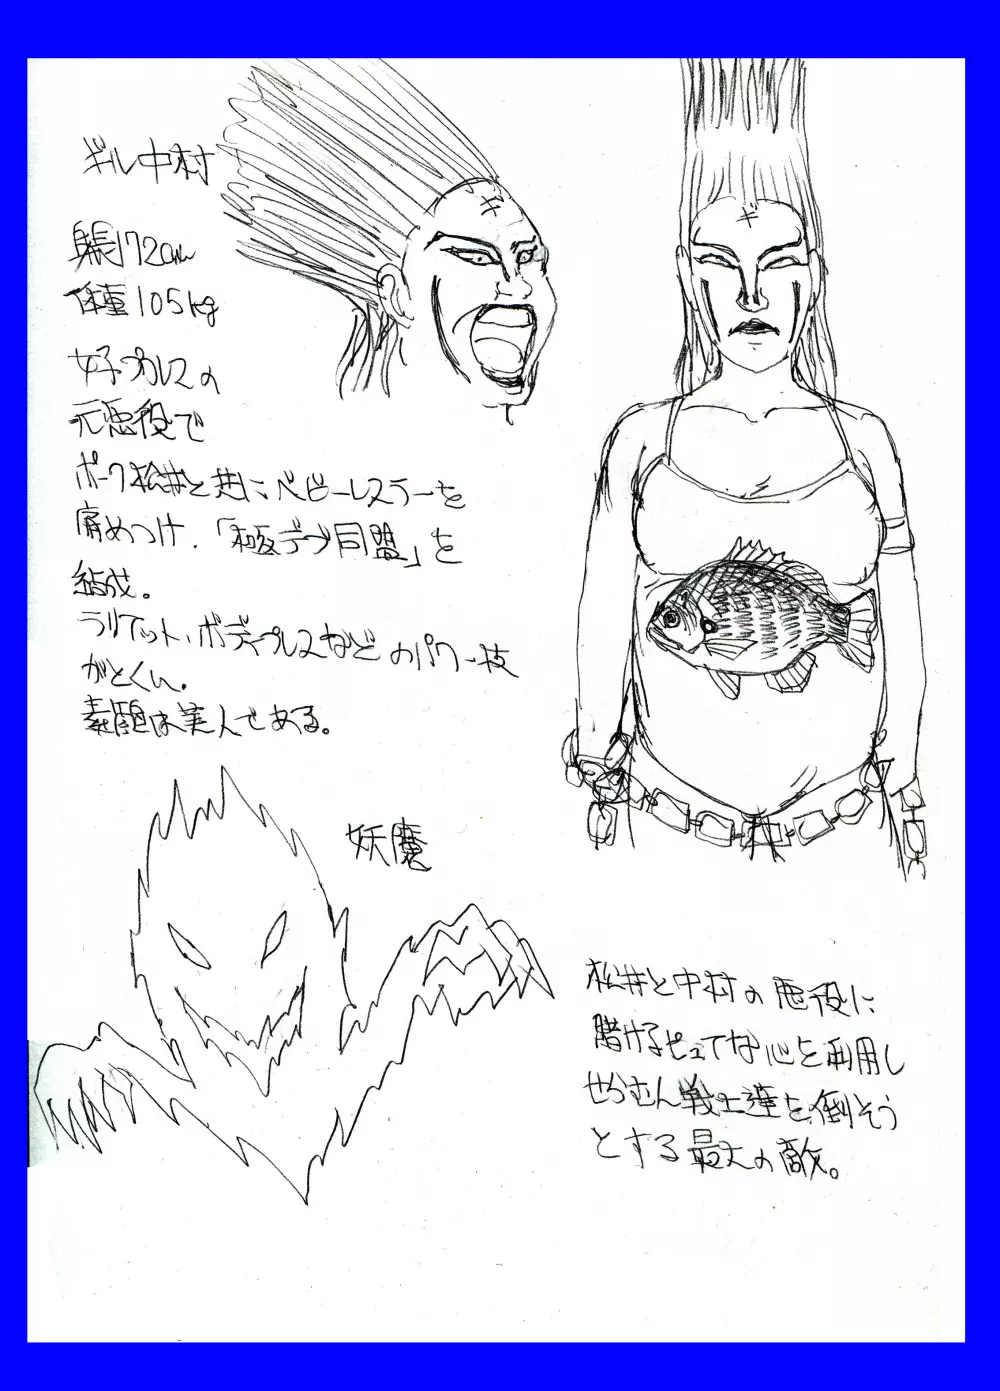 ギル中村
ギ
ギ
身長172cm
体重105kg
女子プロレスの
元悪役で
ポーク松井と共にベビーレスラーを
痛めつけ、「極デブ同盟」を
結成。
ラリアット、ボディプレスなどのパワー技
がとくい。
素顔は美人である。
妖魔
松井と中村の悪役に
賭けるピュアな心を利用し
せらむん戦士達を倒そう
とする最大の敵。